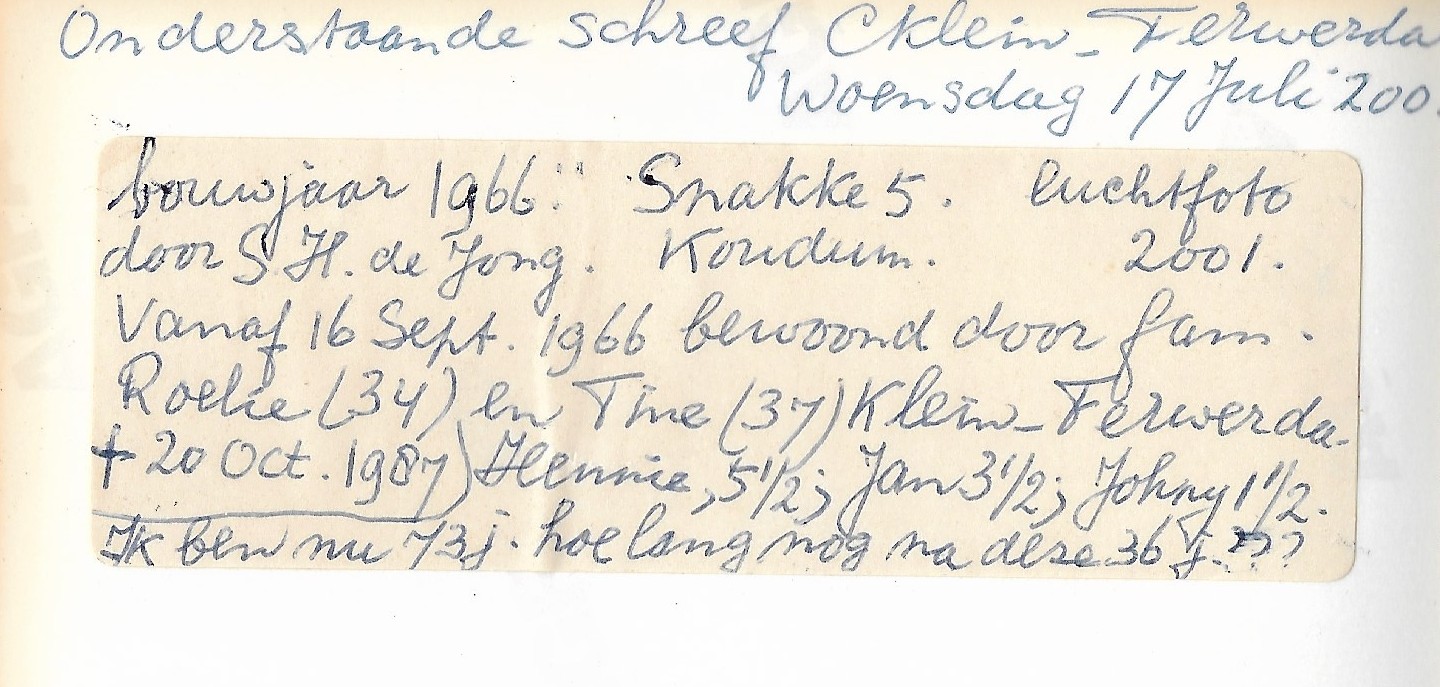 Onderstaande schreef CKlein-Ferwerda
Woensdag 17 Juli 200
bouwjaar 1966. Snakke 5. luchtfoto
door S.H. de Jong. Koudum. 2001.
Vanaf 16 Sept. 1966 bewoond door fam.
Roelie (34) en Tine (37) Klein-Ferwerda.
† 20 Oct. 1987) Hennie, 5½; Jan 3½; Johny 1½.
Ik ben nu 73 j. hoe lang nog na deze 36 j.???